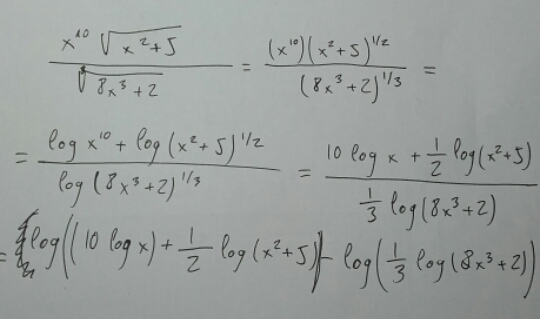 x^10 √(x^2+5) / ∛(8x^3+2) = (x^10)(x^2+5)^1/2 / (8x^3+2)^1/3 =
= log x^10 + log(x^2+5)^1/2 / log(8x^3+2)^1/3 = 10 log x + 1/2 log(x^2+5) / 1/3 log(8x^3+2)
= log((10 log x) + 1/2 log(x^2+5)) - log(1/3 log(8x^3+2))